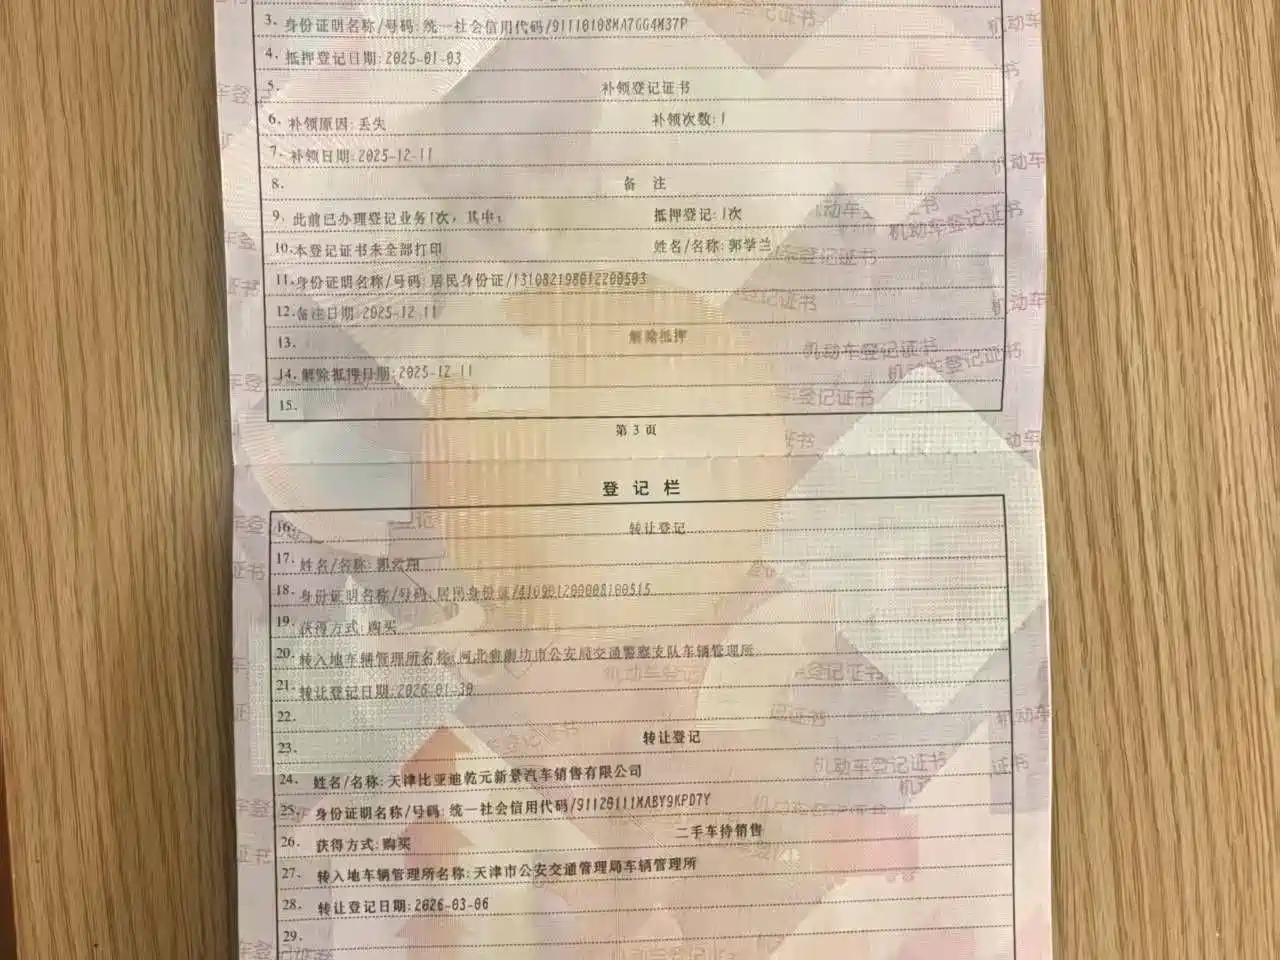 3. 身份证明名称/号码: 统一社会信用代码/91110108MA7GG4M37P
4. 抵押登记日期: 2025-01-03
5. 补领登记证书
6. 补领原因: 丢失 补领次数: 1
7. 补领日期: 2025-12-11
8. 备 注
9. 此前已办理登记业务1次, 其中: 抵押登记: 1次
10. 本登记证书未全部打印 姓名/名称: 郭学兰
11. 身份证明名称/号码: 居民身份证/131082198012200503
12. 备注日期: 2025-12-11
13. 解除抵押
14. 解除抵押日期: 2025-12-11
15.
第 3 页
登 记 栏
16. 转让登记
17. 姓名/名称: 郭云翔
18. 身份证明名称/号码: 居民身份证/410901200008100515
19. 获得方式: 购买
20. 转入地车辆管理所名称: 河北省廊坊市公安局交通警察支队车辆管理所
21. 转让登记日期: 2026-01-30
22.
23. 转让登记
24. 姓名/名称: 天津比亚迪乾元新景汽车销售有限公司
25. 身份证明名称/号码: 统一社会信用代码/91120111MABY9KPD7Y
26. 获得方式: 购买 二手车待销售
27. 转入地车辆管理所名称: 天津市公安交通管理局车辆管理所
28. 转让登记日期: 2026-03-06
29.